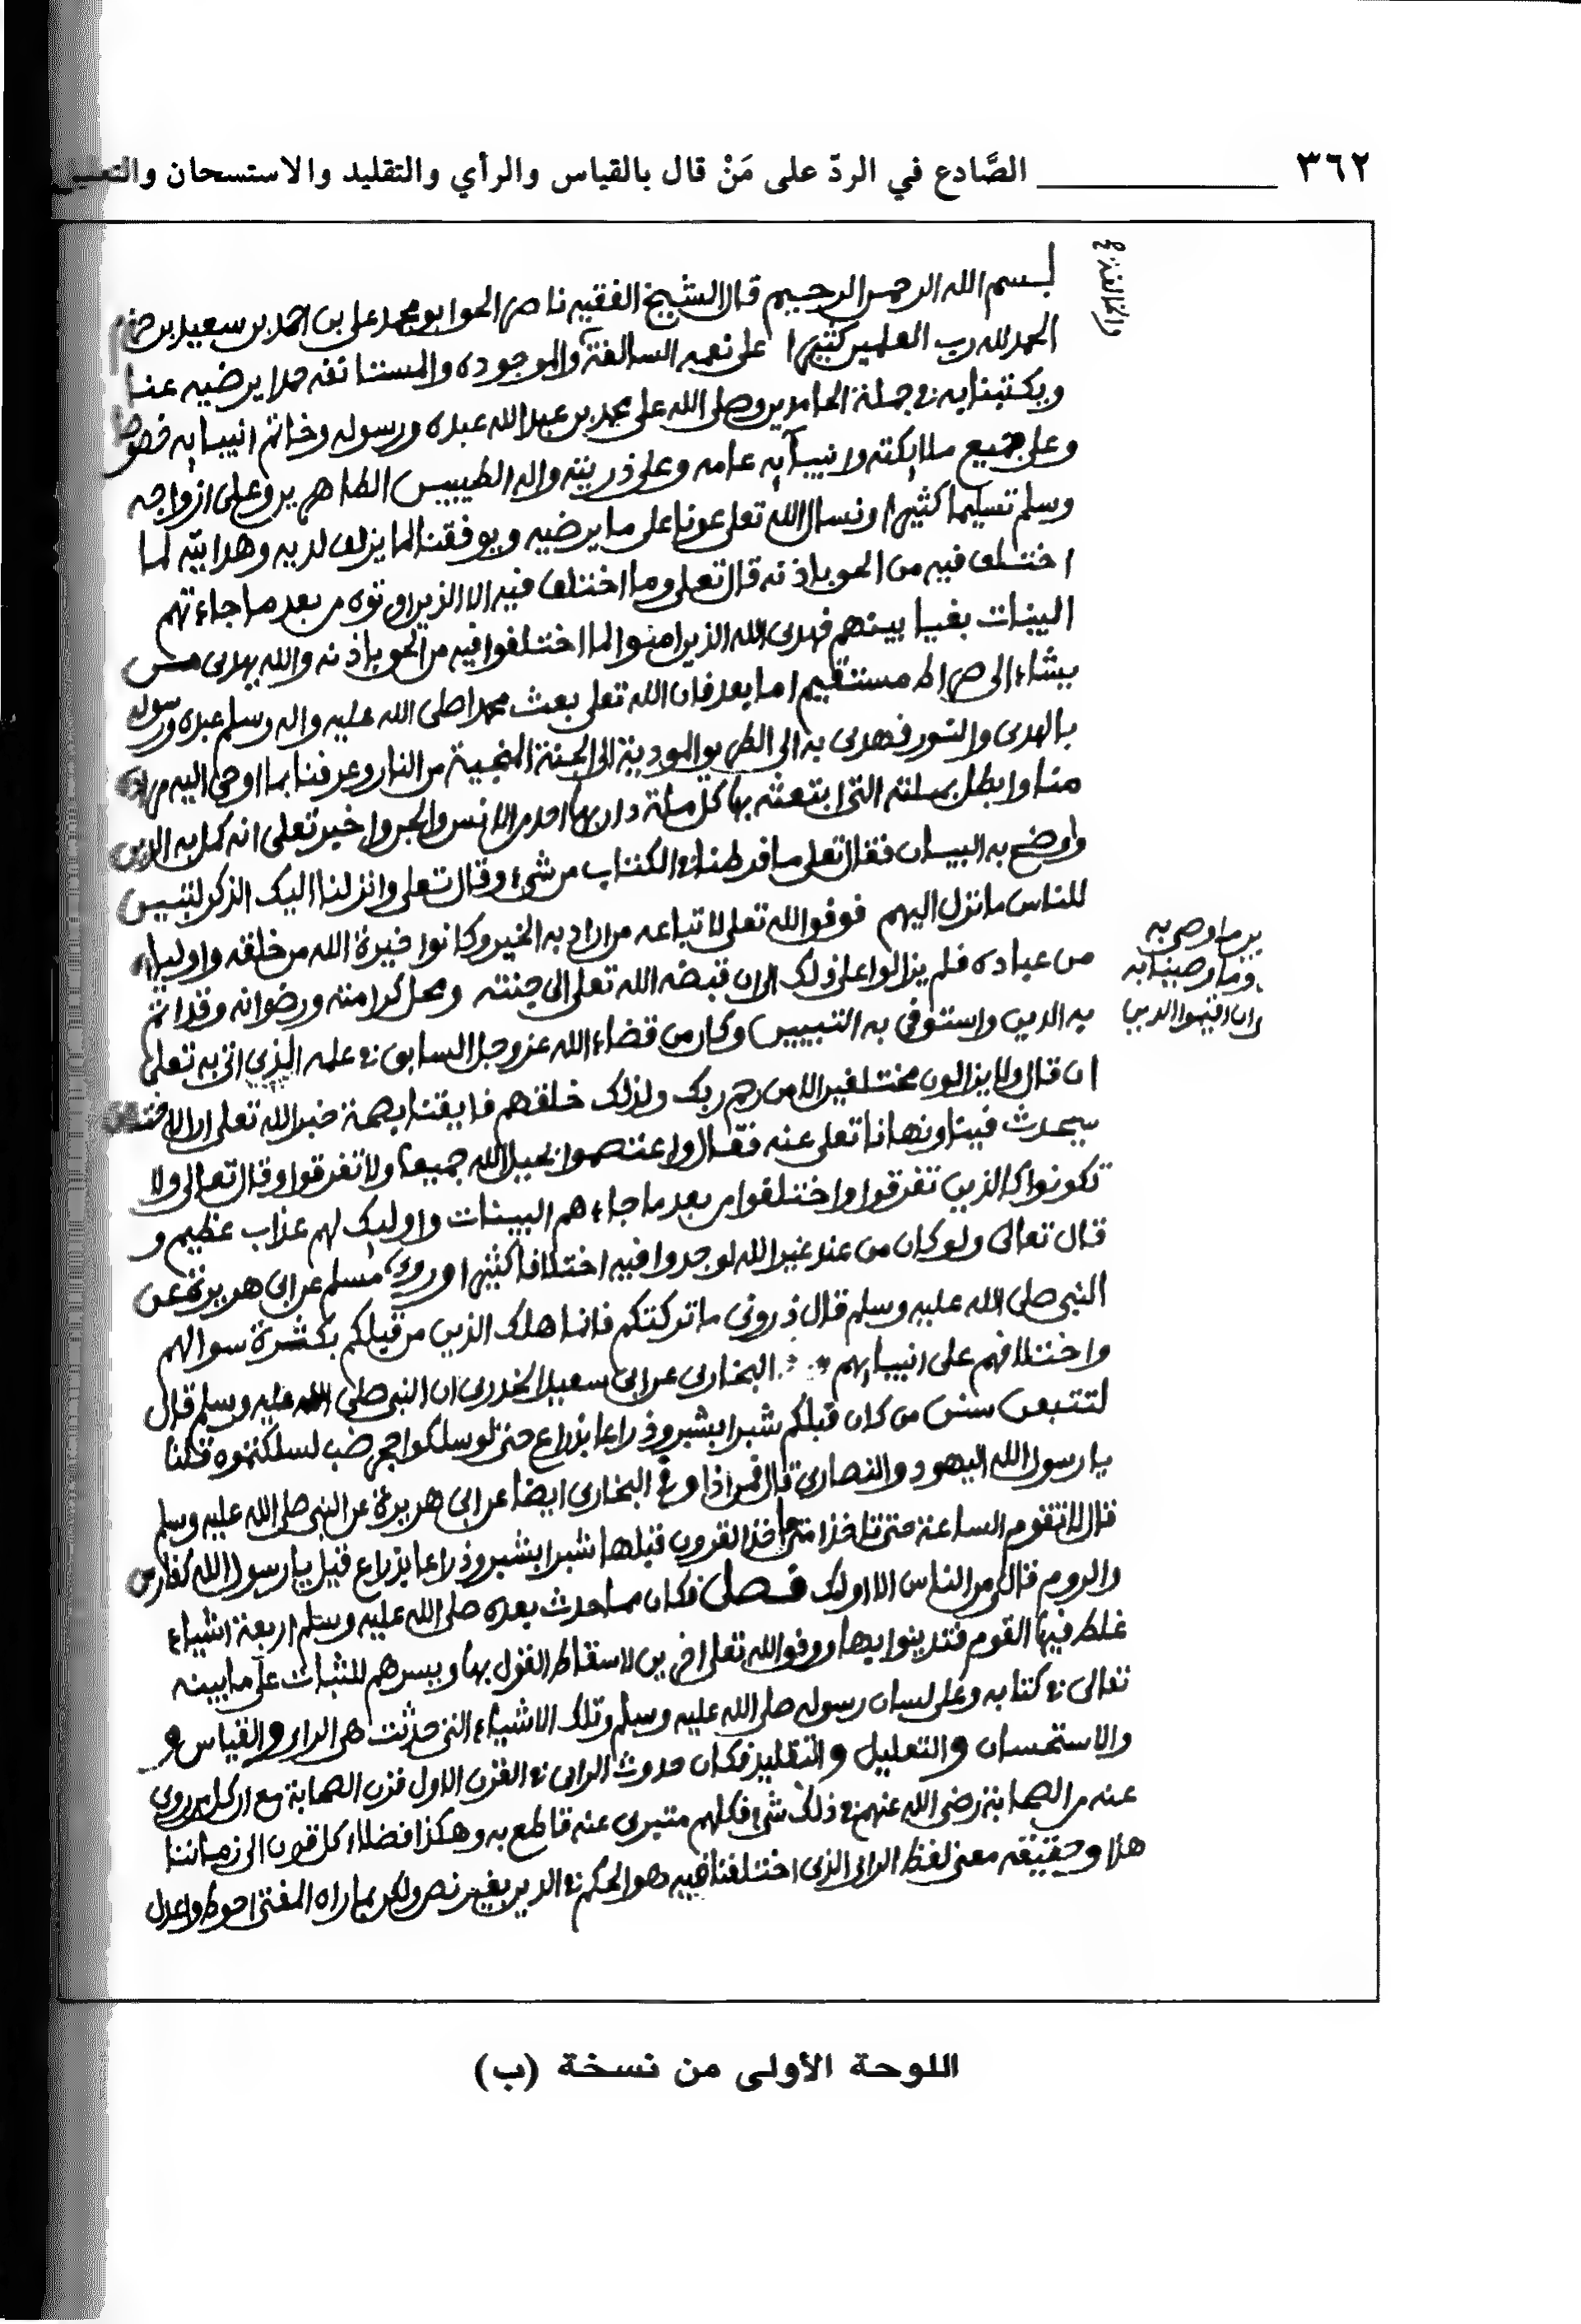 ٣٦٢ الصَّادع في الردّ على مَنْ قال بالقياس والرأي والتقليد والاستسحان والتعليل
بسم الله الرحمن الرحيم قال الشيخ الفقيه ناصر الحق ابو محمد على بن احمد بن سعيد بن حزم
الحمد لله رب العلمين كثيرا على نعمه السالفة والموجوده والمستانفه حمدا يرضيه عنا
ويكتبنا به في جملة الحامدين وصلى الله على محمد بن عبد الله عبده ورسوله وخاتم انبيايه خصوصا
وعلى جميع ملايكته وانبيآيه عامه وعلى ذريته واله الطيبين الطاهرين وعلى ازواجه
وسلم تسليما كثيرا ونسال الله تعلى عونا على ما يرضيه ويوفقنا لما يزلف لديه وهدايته لما
اختلف فيه من الحق باذنه قال تعلى وما اختلف فيه الا الذين اوتوه من بعد ما جاءتهم
البينات بغيا بينهم فهدى الله الذين امنوا لما اختلفوا فيه من الحق باذنه والله يهدى من
يشاء الى صراط مستقيم اما بعد فان الله تعلى بعث محمدا صلى الله عليه واله وسلم عبده ورسوله
بالهدى والنور فهدى به الى الطريق المودية الى الجنة المنجية من النار وعرفنا بما اوحى اليه
منا وابطل بملته التي ابتعثه بها كل ملة دان بها احد من الانس والجن واخبر تعلى انه كمل به الدين
واوضح به البيان فقال تعلى ما فرطنا في الكتاب من شيء وقال تعلى وانزلنا اليك الذكر لتبين
للناس ما نزل اليهم فوفق الله تعلى لاتباعه من اراد به الخير وكانوا خيرة الله من خلقه واولياءه
من عباده فلم يزالوا على ذلك الى ان قبضه الله تعلى الى جنته ومحل كرامته ورضوانه وقد اتم
به الدين واستوفى به التبيين وكان من قضاء الله عز وجل السابق في علمه الذي اتى به تعلى
ان قال ولا يزالون مختلفين الا من رحم ربك ولذلك خلقهم فايقنا بصحة خبر الله تعلى ان الاختلاف
سيحدث فينا ونهانا تعلى عنه فقال واعتصموا بحبل الله جميعا ولا تفرقوا وقال تعالى ولا
تكونوا كالذين تفرقوا واختلفوا من بعد ما جاءهم البينات واوليك لهم عذاب عظيم و
قال تعالى ولو كان من عند غير الله لوجدوا فيه اختلافا كثيرا وروى مسلم عن ابي هريرة عن
النبي صلى الله عليه وسلم قال ذروني ما تركتكم فانما هلك الذين من قبلكم بكثرة سوالهم
واختلافهم على انبيايهم البخارى عن ابى سعيد الخدرى ان النبي صلى الله عليه وسلم قال
لتتبعن سنن من كان قبلكم شبرا بشبر وذراعا بذراع حتى لو سلكوا جحر ضب لسلكتموه قلنا
يا رسول الله اليهود والنصارى قال فمن اذا وفي البخارى ايضا عن ابى هريرة عن النبي صلى الله عليه وسلم
قال لا تقوم الساعة حتى تاخذ امتى ماخذ القرون قبلها شبرا بشبر وذراعا بذراع قيل يا رسول الله كفارس
والروم قال ومن الناس الا اولئك فصل فكان مما حدث بعده صلى الله عليه وسلم اربعة اشياء
غلط فيها القوم فتدينوا بها ووفق الله تعلى اخرين لاسقاط القول بها ويسرهم للثبات على ما بينه
تعالى في كتابه وعلى لسان رسوله صلى الله عليه وسلم وتلك الاشياء التي حدثت هي الراى والقياس و
والاستحسان والتعليل والتقليد فكان حدوث الراى في القرن الاول قرن الصحابة مع ان كل من روى
عنه من الصحابة رضى الله عنهم في ذلك شيء فكلهم متبرى عنه قاطع به وهكذا فضلاء كل قرن الى زماننا
هذا وحقيقة معنى لفظ الراى الذى اختلفنا فيه هو الحكم في الدين بغير نص ولكن بما راه المفتى احوط واعدل
ما وصى به
وما وصينا به
ان اقيموا الدين
اللوحة الأولى من نسخة (ب)